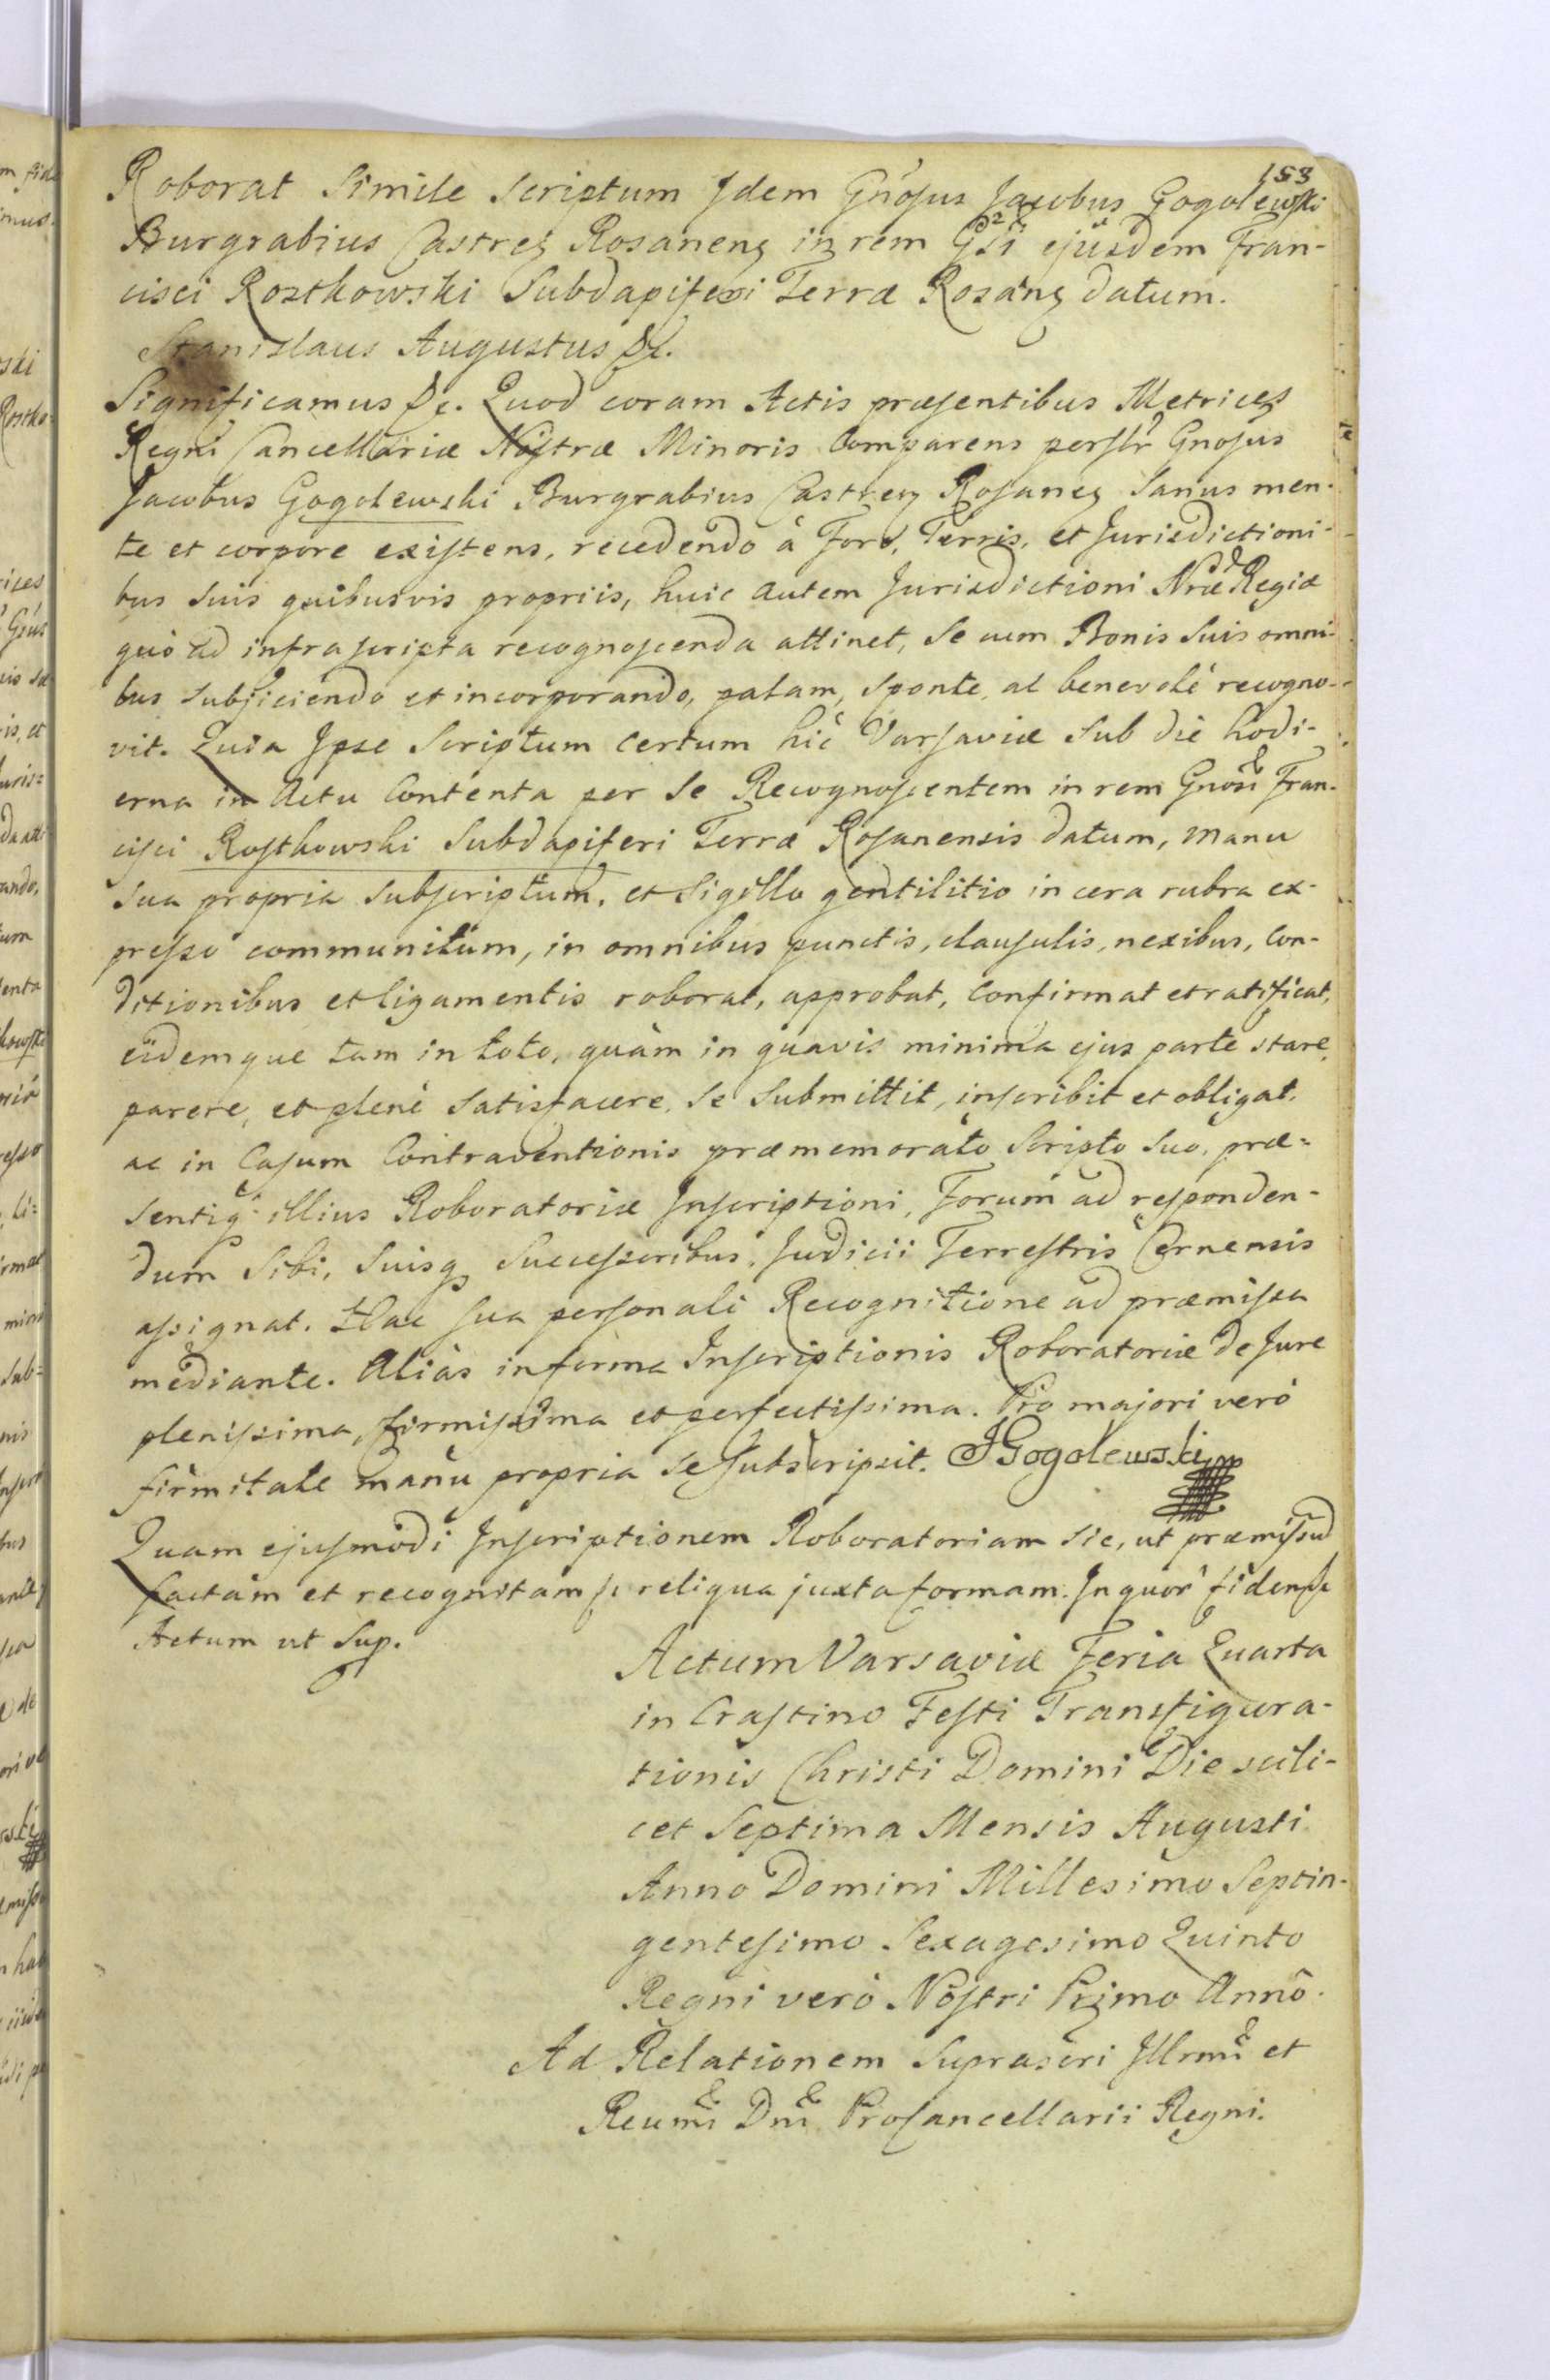 153
Roborat Simile Scriptum Jdem Gnosus Jacobus Gogolewski
Burgrabius Castreg Rosaneng in rem Gsi ejusdem Fran-
cisci Rostkowski Subdapiferi Terræ Rosang datum.
Stanislaus Augustus &c.
Significamus &c. Quod coram Actis præsentibus Metrices
Regni Cancellariæ Nostræ Minoris Comparens persłr Gnosus
Jacobus Gogolewski Burgrabius Castreng Rosaneg Sanus men-
te et corpore existens, recedendo à Foro, Terris, et Jurisdictioni-
bus suis quibusvis propriis, huic autem Jurisdictioni Nræ Regiæ
quò ad infrascripta recognoscenda attinet, se cum Bonis suis omni-
bus subjiciendo et incorporando, palam, sponte, ac benevolè recogno-
vit. Quia Jpse Scriptum certum hic Varsaviæ sub die hodi-
erna in Actu Contenta per se Recognoscentem in rem Gnosi Fran-
cisci Rostkowski Subdapiferi Terræ Rosanensis datum, manu
sua propria subscriptum, et Sigillo gentilitio in cera rubra ex-
presso communitum, in omnibus punctis, clausulis, nexibus, Con-
ditionibus et ligamentis roborat, approbat, Confirmat et ratificat,
eidemque tam in toto, quàm in quavis minima ejus parte stare,
parere, et plenè satisfacere, se submittit, inscribit et obligat.
ac in Casum Contraventionis præmemorato Scripto suo, præ-
sentiq illius Roboratoriæ Jnscriptioni, Forum ad responden-
dum Sibi, Suisq Successoribus, Judicii Terrestris Cernensis
assignat. Hac sua personali Recognitione ad præmissa
mediante. Aliàs in forma Jnscriptionis Roboratoriæ de Jure
plenissima, firmissima et perfectissima. Pro majori verò
firmitate manu propria se subscripsit. JGogolewski mp
Quam ejusmodi Jnscriptionem Roboratoriam sic, ut præmissum
factam et recognitam &c reliqua juxta formam. Jn quor fidem &c
Actum ut Sup.
Actum Varsaviæ Feria Quarta
in Crastino Festi Transfigura-
tionis Christi Domini Die scili-
cet Septima Mensis Augusti
Anno Domini Millesimo Septin-
gentesimo Sexagesimo Quinto
Regni verò Nostri Primo Annô.
Ad Relationem Suprascri Jllrmi et
Reumi Dni ProCancellarii Regni.